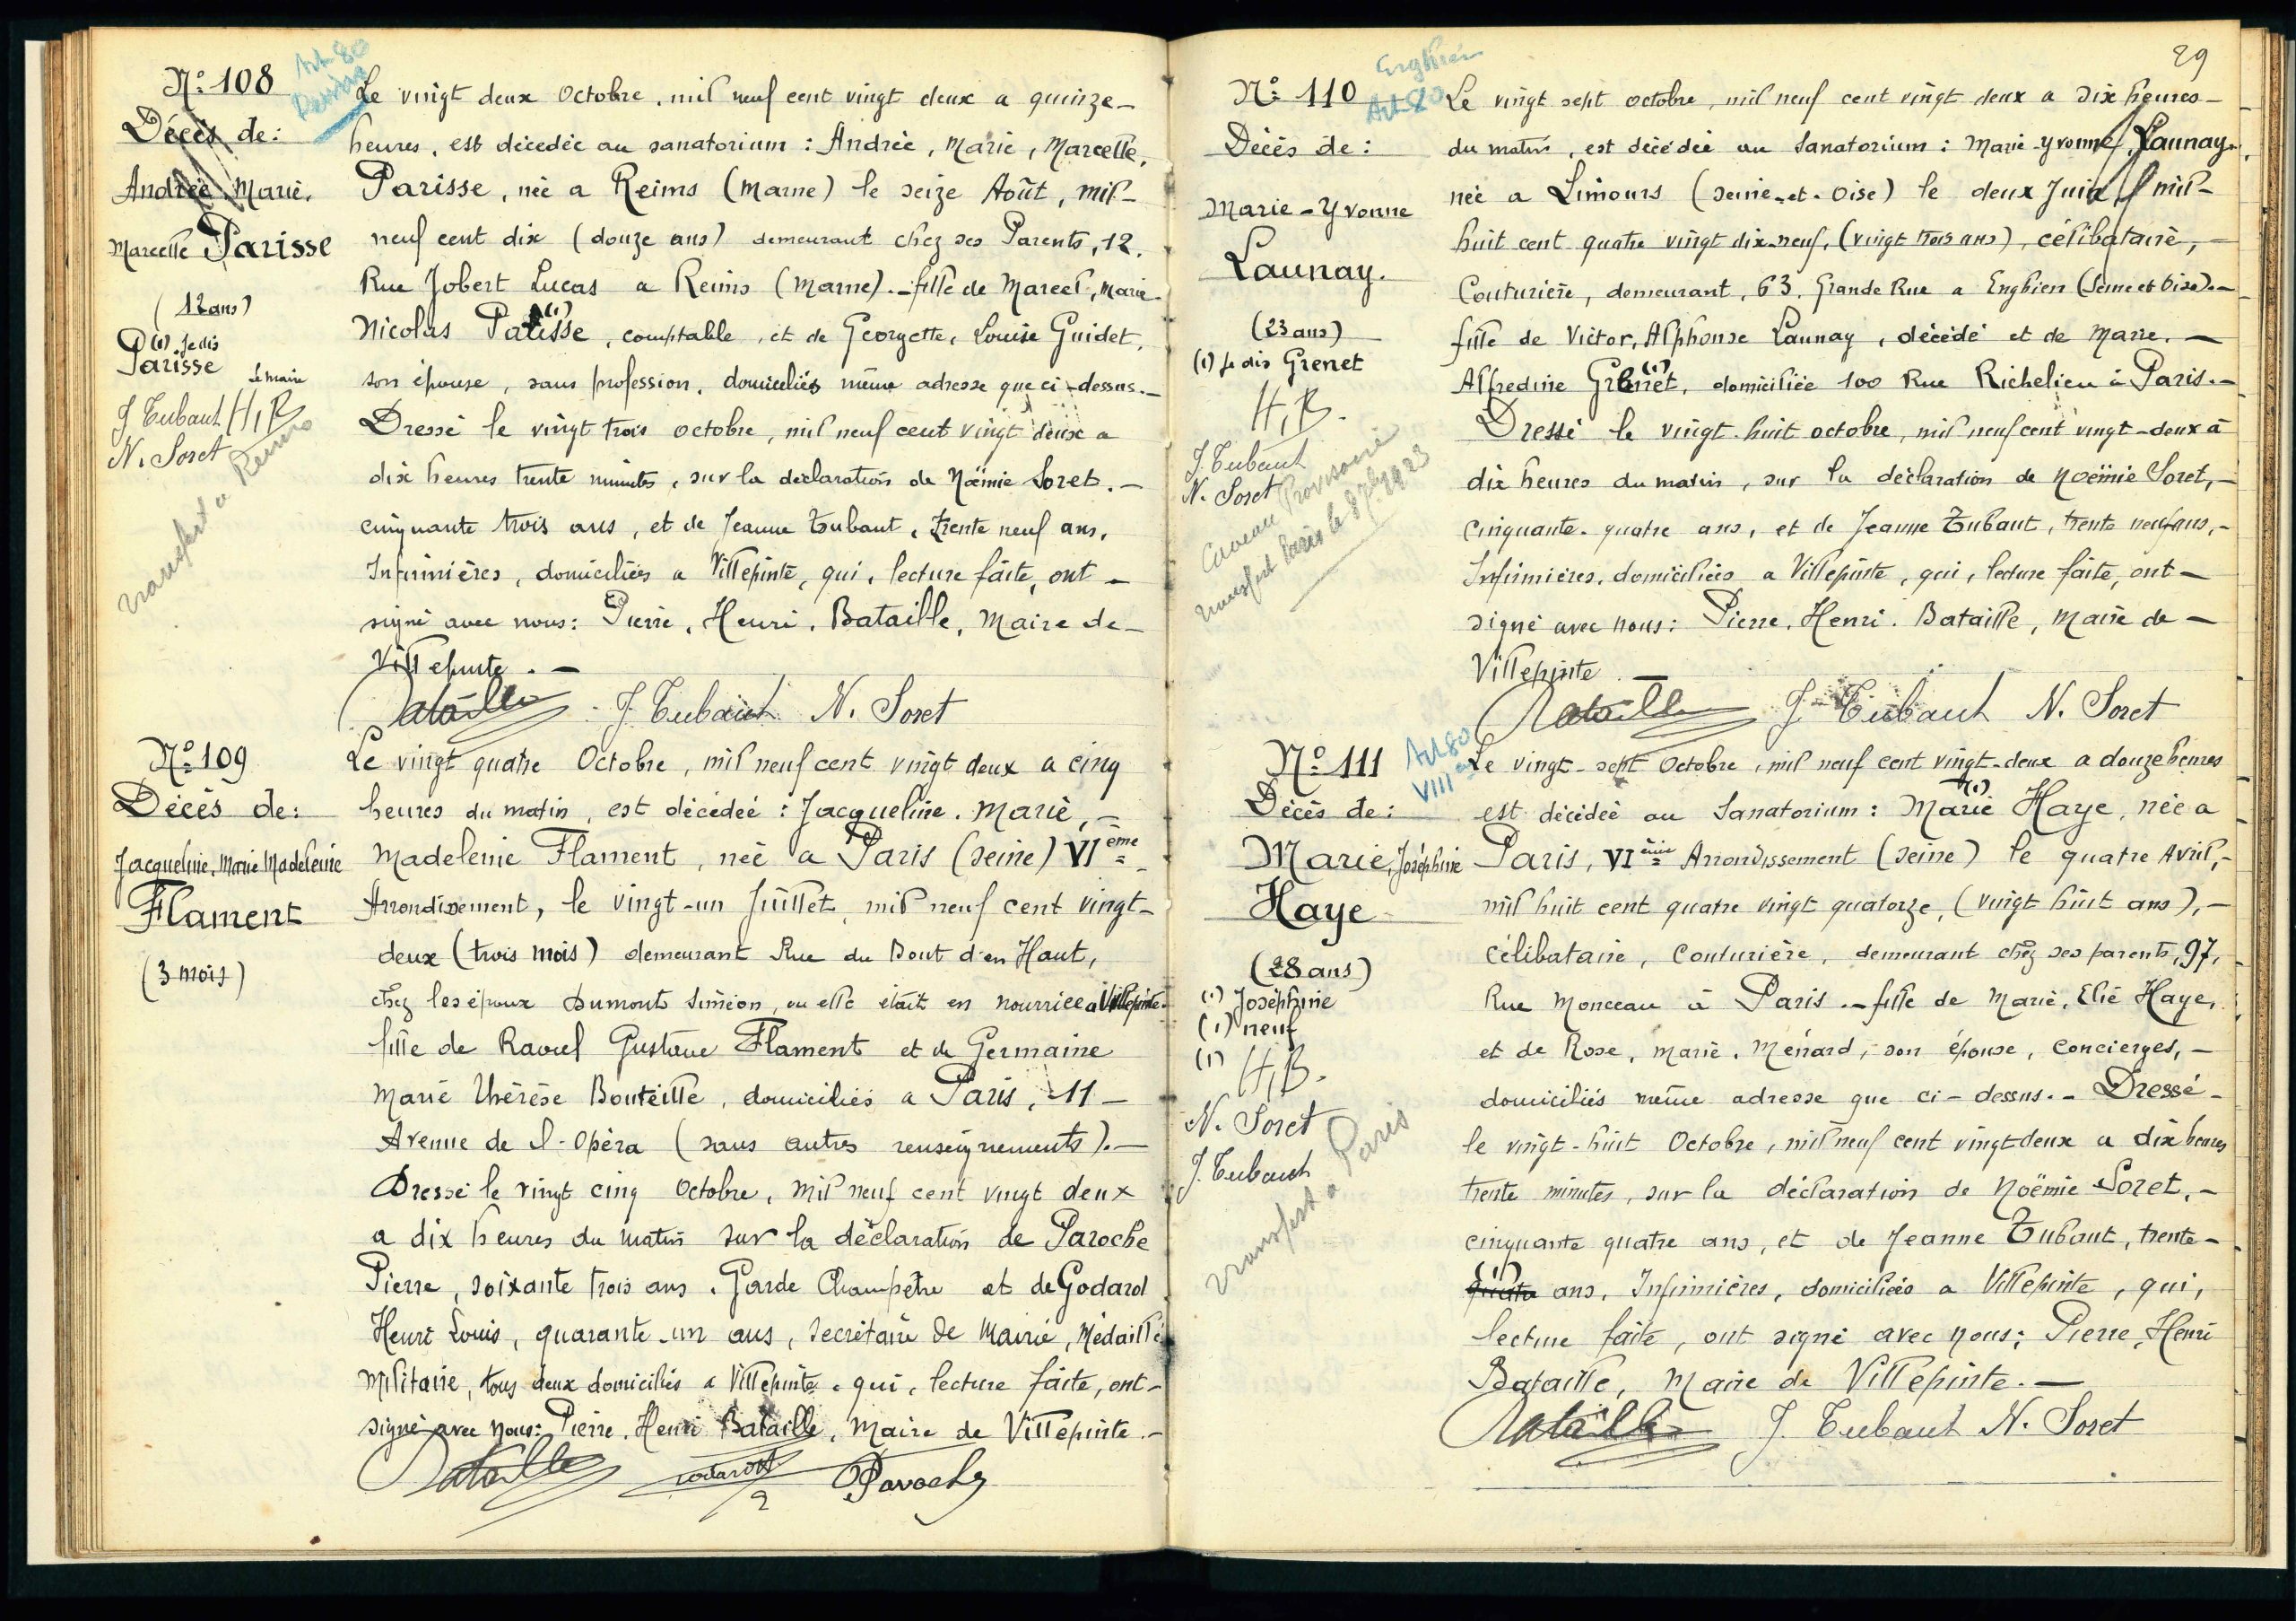 N° 108
Art. 80
Décès de:
Andrée, Marie,
Marcelle Parisse
(12 ans)
(1) Je dis
Parisse
Le maire
J. Tubaut H,B
N. Soret
Transfert a Reims
Le vingt deux Octobre, mil neuf cent vingt deux a quinze-
heures, est décédée au sanatorium : Andrée, Marie, Marcelle,
Parisse, née a Reims (Marne) le seize Août, mil-
neuf cent dix (douze ans) demeurant chez ses Parents, 12,
Rue Jobert Lucas a Reims (Marne).- fille de Marcel, Marie-
Nicolas Parisse (1), comptable, et de Georgette, Louise Guidet,
son épouse, sans profession, domiciliés même adresse que ci-dessus.-
Dressé le vingt trois octobre, mil neuf cent vingt deux a
dix heures trente minutes, sur la déclaration de Noëmie Soret.-
cinquante trois ans, et de Jeanne Tubaut, trente neuf ans,
Infirmières, domiciliées a Villepinte, qui, lecture faite, ont-
signé avec nous: Pierre, Henri, Bataille, Maire de-
Villepinte.-
Bataille J. Tubaut N. Soret
N° 109
Décès de:
Jacqueline, Marie Madeleine
Flament
(3 mois)
Le vingt quatre Octobre, mil neuf cent vingt deux a cinq
heures du matin, est décédée : Jacqueline, Marie,-
Madeleine Flament, née a Paris (Seine) VIème
Arrondissement, le vingt-un Juillet, mil neuf cent vingt-
deux (trois mois) demeurant Rue du Bout d'en Haut,
chez les époux Dumont Siméon, ou elle était en nourrice a Villepinte-
fille de Raoul Gustave Flament et de Germaine
Marie Thérèse Bouteille, domiciliés a Paris, 11-
Avenue de l'Opéra (sans autres renseignements).-
Dressé le vingt cinq Octobre, mil neuf cent vingt deux
a dix heures du matin sur la déclaration de Paroche
Pierre, soixante trois ans, Garde Champêtre et de Godard
Henri Louis, quarante-un ans, secrétaire de Mairie, Médaillé
Militaire, tous deux domiciliés a Villepinte, qui, lecture faite, ont-
signé avec nous: Pierre, Henri Bataille, Maire de Villepinte.-
Bataille Godard Paroche
29
N° 110
Enghien
Art. 80
Décès de:
Marie-Yvonne
Launay.
(23 ans)
(1) Je dis Grenet
H,B.
J. Tubaut
N. Soret
Caveau Provisoire
Transfert Paris le 8 7bre 1923
Le vingt sept octobre, mil neuf cent vingt deux a dix heures-
du matin, est décédée au Sanatorium : Marie-Yvonne, Launay,
née a Limours (Seine-et-Oise) le deux Juin, mil-
huit cent quatre vingt dix-neuf, (vingt trois ans), célibataire,-
Couturière, demeurant, 63, Grande Rue a Enghien (Seine et Oise).-
fille de Victor, Alphonse Launay, décédé et de Marie.-
Alfredine Grenet (1), domiciliée 100 Rue Richelieu à Paris.-
Dressé le vingt-huit octobre, mil neuf cent vingt-deux à
dix heures du matin, sur la déclaration de Noëmie Soret,-
cinquante-quatre ans, et de Jeanne Tubaut, trente neuf ans,-
Infirmières, domiciliées a Villepinte, qui, lecture faite, ont-
signé avec nous: Pierre, Henri. Bataille, Maire de-
Villepinte.-
Bataille J. Tubaut N. Soret
N° 111
Art 80
VIIIe
Décès de:
Marie, Joséphine
Haye
(28 ans)
(1) Joséphine
(1) neuf
(1) H,B.
N. Soret
J. Tubaut
Transfert a Paris
Le vingt-sept Octobre, mil neuf cent vingt-deux a douze heures
est décédée au Sanatorium : Marie (1) Haye, née a
Paris, VIème Arrondissement (Seine) le quatre Avril,-
mil huit cent quatre vingt quatorze, (vingt huit ans),-
célibataire, Couturière, demeurant chez ses parents, 97,
Rue Monceau à Paris.- fille de Marie, Elie Haye,
et de Rose, Marie, Ménard, son épouse, Concierges,-
domiciliés même adresse que ci-dessus.- Dressé-
le vingt-huit Octobre, mil neuf cent vingt deux a dix heures
trente minutes, sur la déclaration de Noëmie Soret,-
cinquante quatre ans, et de Jeanne Tubaut, trente-
quatre (1) ans, Infirmières, domiciliées a Villepinte, qui,
lecture faite, ont signé avec nous: Pierre, Henri
Bataille, Maire de Villepinte.-
Bataille J. Tubaut N. Soret